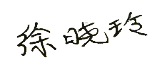 徐晓玲